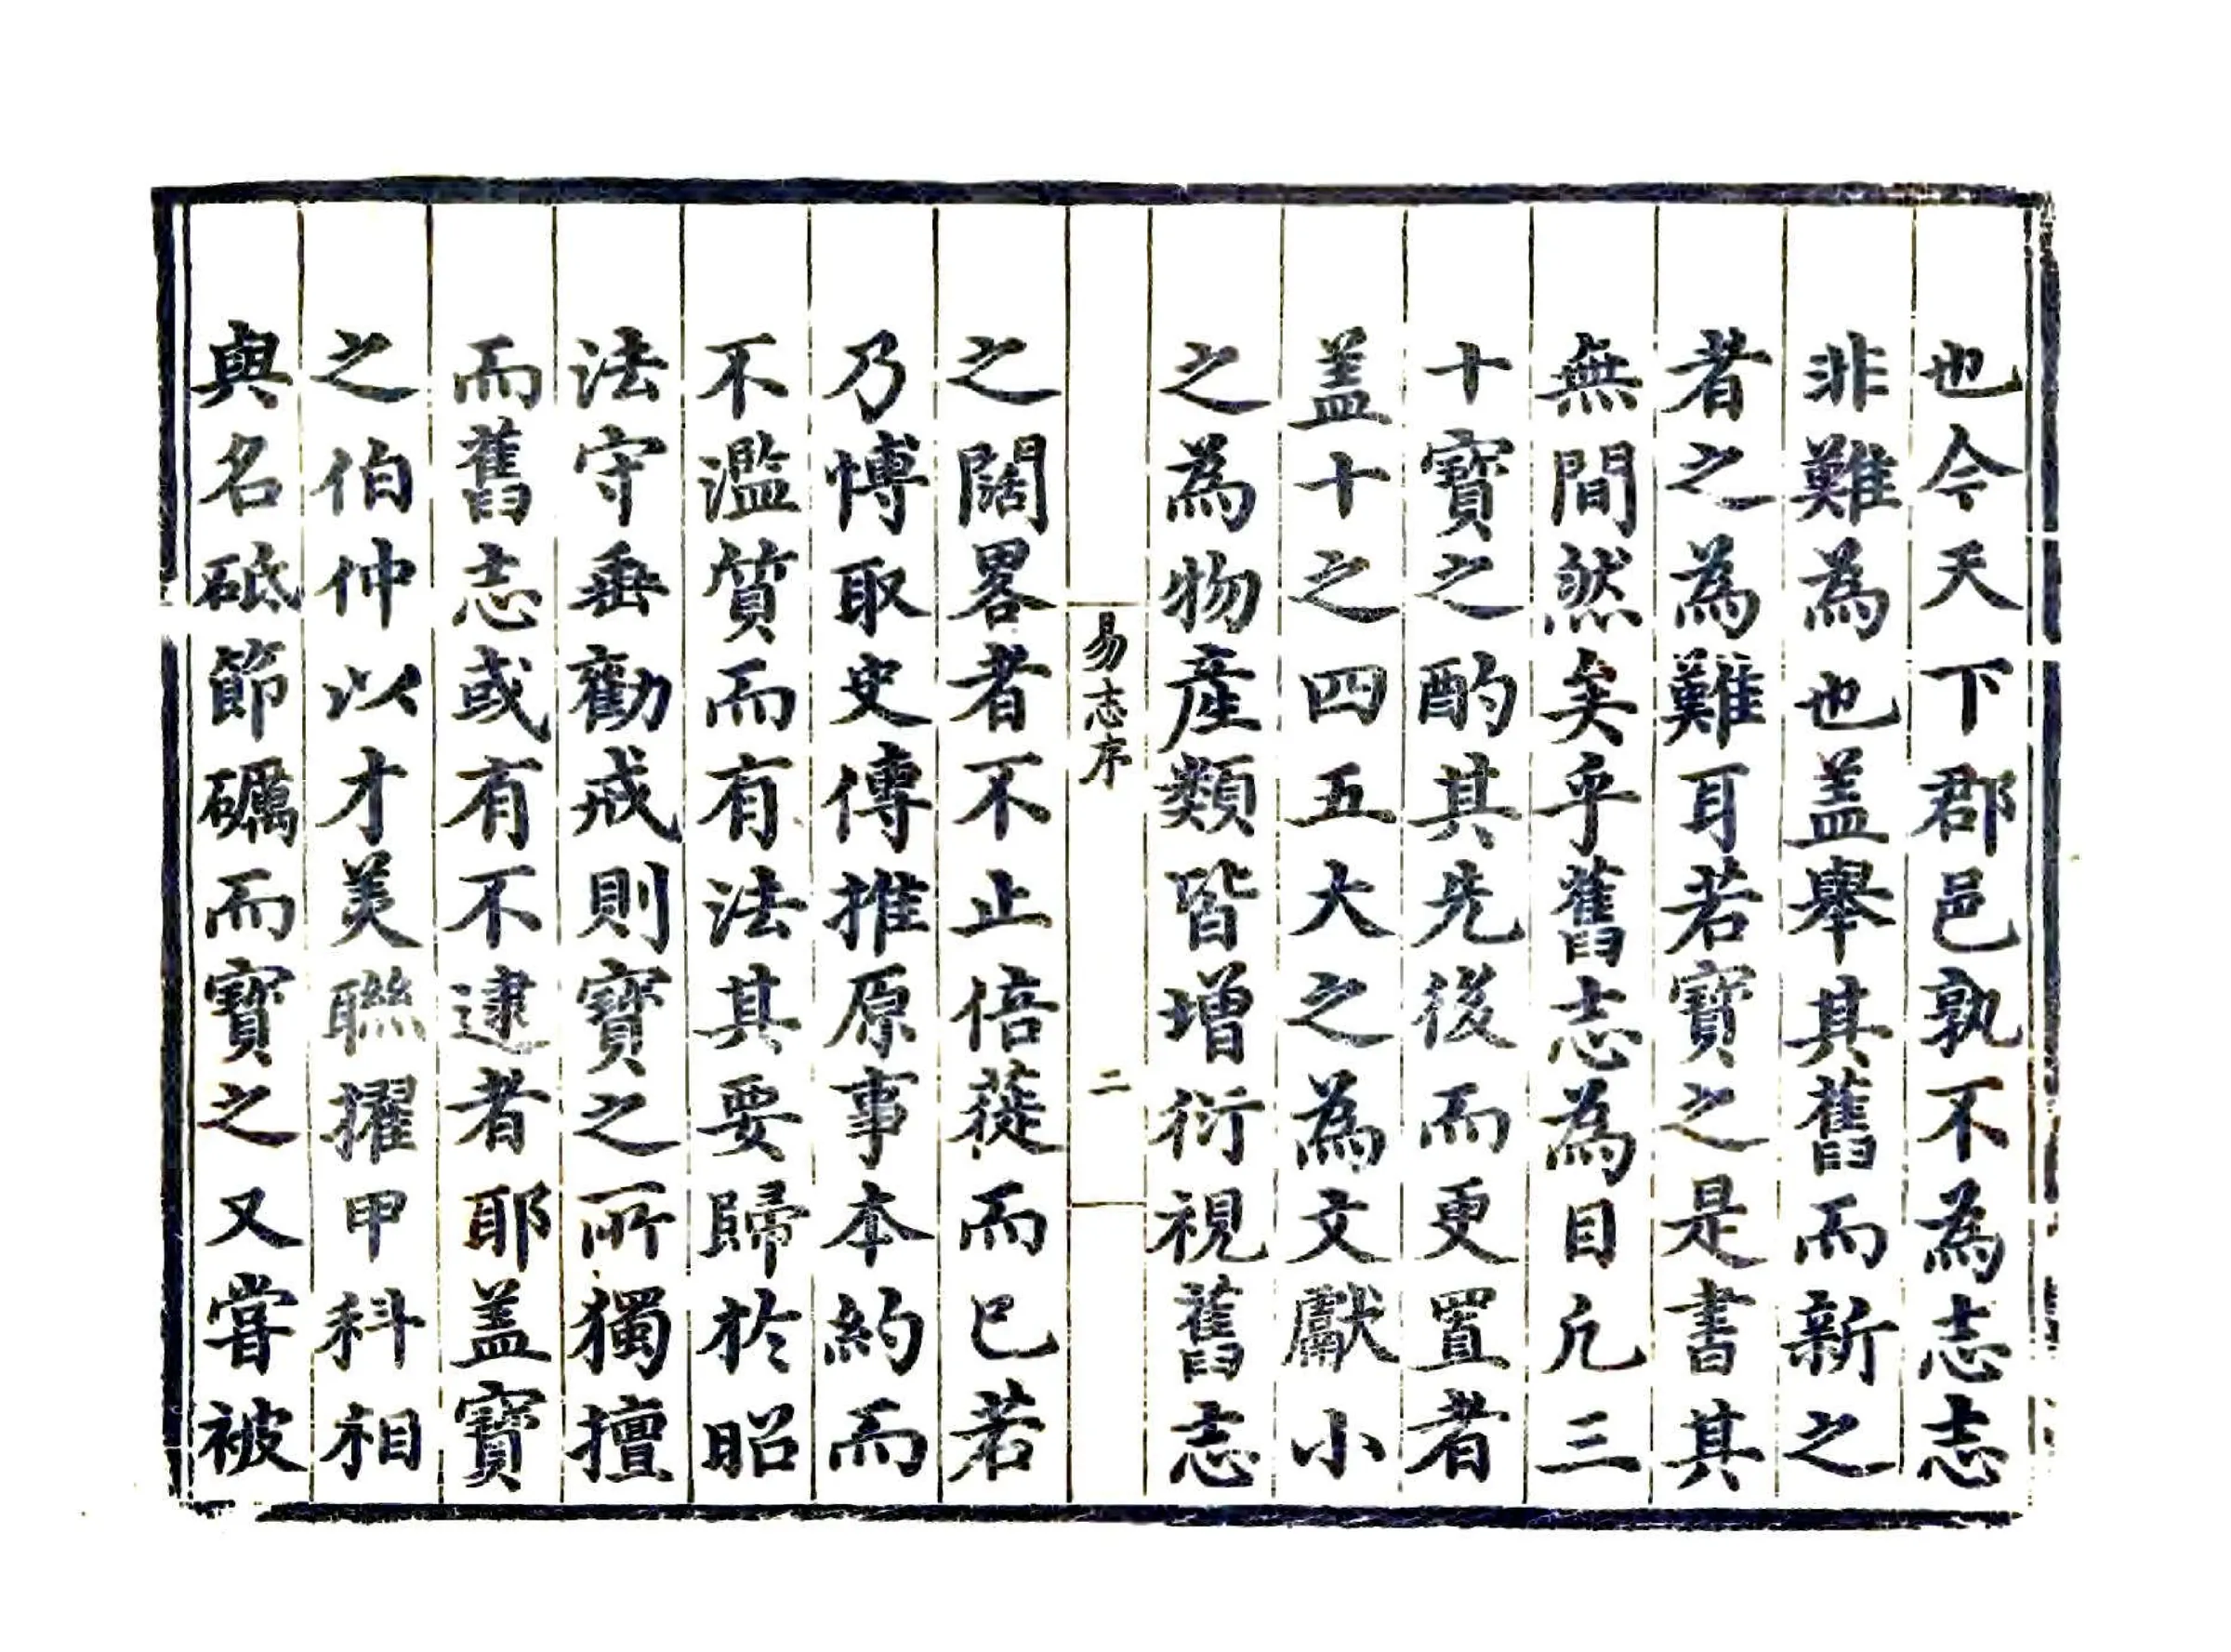 也今天下郡邑孰不為志志
非難為也盖舉其舊而新之
者之為難耳若寶之是書其
無間然矣乎舊志為目凢三
十寶之酌其先後而更置者
盖十之四五大之為文獻小
之為物產類皆增衍視舊志
易志序
二
之闊畧者不止倍蓰而已若
乃愽取史傳推原事本約而
不濫質而有法其要歸於昭
法守垂勸戒則寶之所獨擅
而舊志或有不逮者耶盖寶
之伯仲以才美聯擢甲科相
與名砥節礪而寶之又嘗被